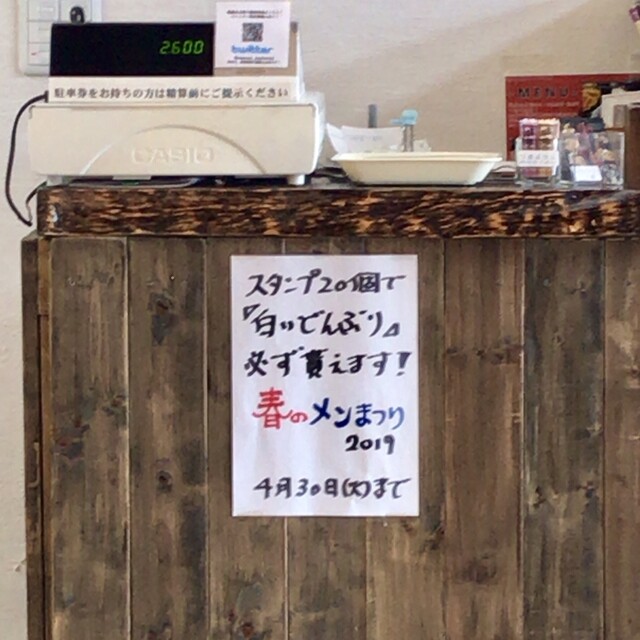 2600
twitter
駐車券をお持ちの方は精算前にご提示ください
CASIO
MENU
スタンプ20個で
『白いどんぶり』
必ず貰えます!
春のメンまつり
2019
4月30日(火)まで